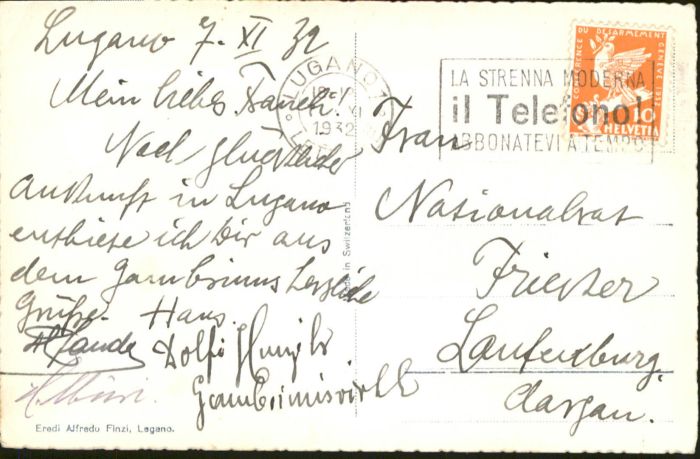 Lugano 7. XI 32
Mein liebes
Nach glücklicher
Ankunft in Lugano
entbiete ich Dir aus
dem Gambrinus herzliche
Grüße. Hans
Dolfi
Gambrinuswirt
Eredi Alfredo Finzi, Lugano.
Made in Switzerland
LUGANO 1
7. XI
1932
LA STRENNA MODERNA
il Telefono!
ABBONATEVI A TEMPO
CONFERENCE DU DESARMEMENT GENEVE 1932
10
HELVETIA
Frau
Nationalrat
Laufenburg.
Aargau.